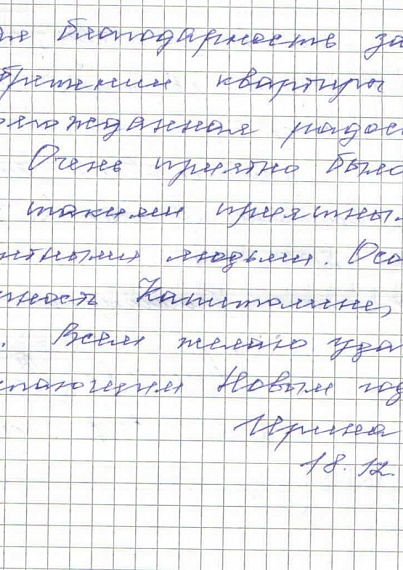 ая благодарность за
бретении квартиры
гожданная радос
Очень приятно было
такими приятны
нтными людьми. Осо
ность Капитолине,
. Всем желаю уда
пающим Новым год
Ирина
18.12.